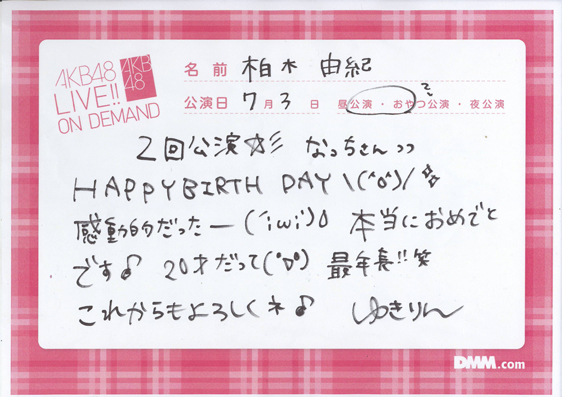 AKB48
LIVE!!
ON DEMAND
AKB
48
名前 柏木 由紀
公演日 7月3日 昼公演・おやつ公演・夜公演
2回公演☆彡 なっちさんっっ
HAPPY BIRTH DAY \(^o^)/
感動的だったー(´;ω;`) 本当におめでと
です♪ 20才だって(°Д°) 最年長!!笑
これからもよろしくネ♪ ゆきりん
DMM.com